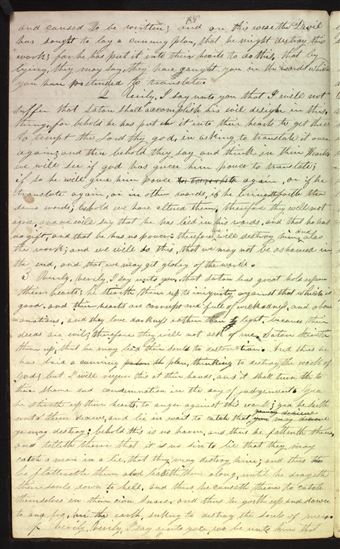 128
and caused to be written; and on this wise the Devil
has sought to lay a cunning plan, that he might destroy this
work; for he has put it into their hearts to do this, that by
lying, they may say, they have caught you in the words which
you have pretended to translate.
Verily, I say unto you that I will not
suffer that Satan shall accomplish his evil design in this
thing, for behold he has put it into their hearts to get thee
to tempt the Lord thy god, in asking to translate it over
again; and then behold they say and think in their hearts
we will see if god has given him power to translate;
if so he will give him power again, or if he
translate again, or in other words, if he bringeth forth the
same words, behold we have altered them, therefore they will not
agree, and we will say that he has lied in his words, and that he has
no gift, and that he has no power; therefore, we will destroy him, and also
the work; and we will do this, that we may not be ashamed in
the end, and that we may get glory of the world.
3 Verily, verily, I say unto you, that Satan has great hold upon
their hearts; he stirreth them up to iniquity against that which is
good, and their hearts are corrupt and full of wickedness and abom
inations, and they love darkness rather than light, because their
deeds are evil; therefore they will not ask of me. Satan stirreth
them up, that he may lead their souls to destruction. And thus he
has laid a cunning plan, thinking to destroy the work of
God; but I will require this at their hands, and it shall turn to
their shame and condemnation in the day of judgement. Yea
he stirreth up their hearts, to anger against this work; yea he saith
unto them deceive, and lie in wait to catch, that
ye may destroy; behold this is no harm, and thus he flattereth them
and telleth them that it is no sin to lie that they may
catch a man in a lie, that they may destroy him; and thus
he flattereth them and leadeth them along, until he draggeth
their souls down to hell, and thus he causeth them to catch
themselves in their own snare, and thus he goeth up and down
to and fro, in the earth, seeking to destroy the souls of men.
4 Verily, verily, I say unto you, wo be unto him that